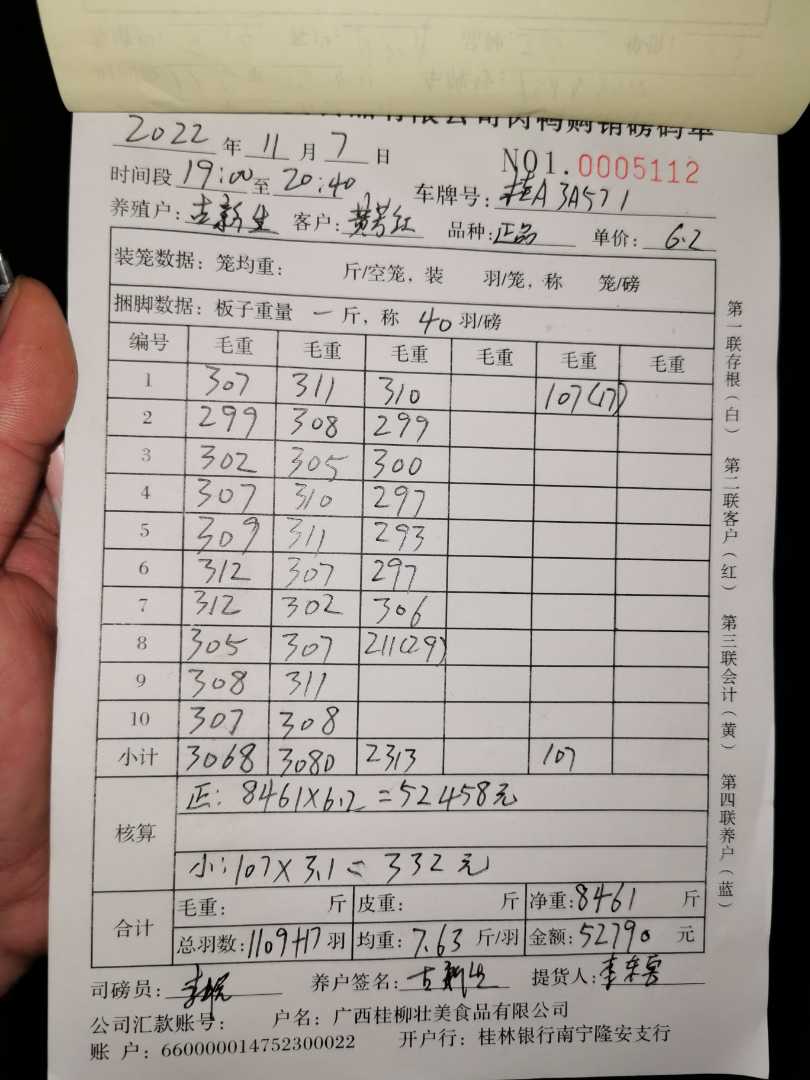 有限公司肉鸭购销磅码单
2022年11月7日 NO1.0005112
时间段19:00至20:40 车牌号:桂A3A571
养殖户:古新生 客户:黄芳红 品种:正品 单价:6.2
装笼数据:笼均重: 斤/空笼,装 羽/笼,称 笼/磅
捆脚数据:板子重量 一 斤,称 40 羽/磅
编号 毛重 毛重 毛重 毛重 毛重 毛重
1 307 311 310 107(17)
2 299 308 299
3 302 305 300
4 307 310 297
5 309 311 293
6 312 307 297
7 312 302 306
8 305 307 211(29)
9 308 311
10 307 308
小计 3068 3080 2313 107
核算
正:8461×6.2=52458元
小:107×3.1=332元
合计
毛重: 斤 皮重: 斤 净重:8461 斤
总羽数:1109+17羽 均重:7.63斤/羽 金额:52790元
司磅员: 养户签名:古新生 提货人:
公司汇款账号: 户名:广西桂柳壮美食品有限公司
账 户:660000014752300022 开户行:桂林银行南宁隆安支行
第一联存根(白) 第二联客户(红) 第三联会计(黄) 第四联养户(蓝)